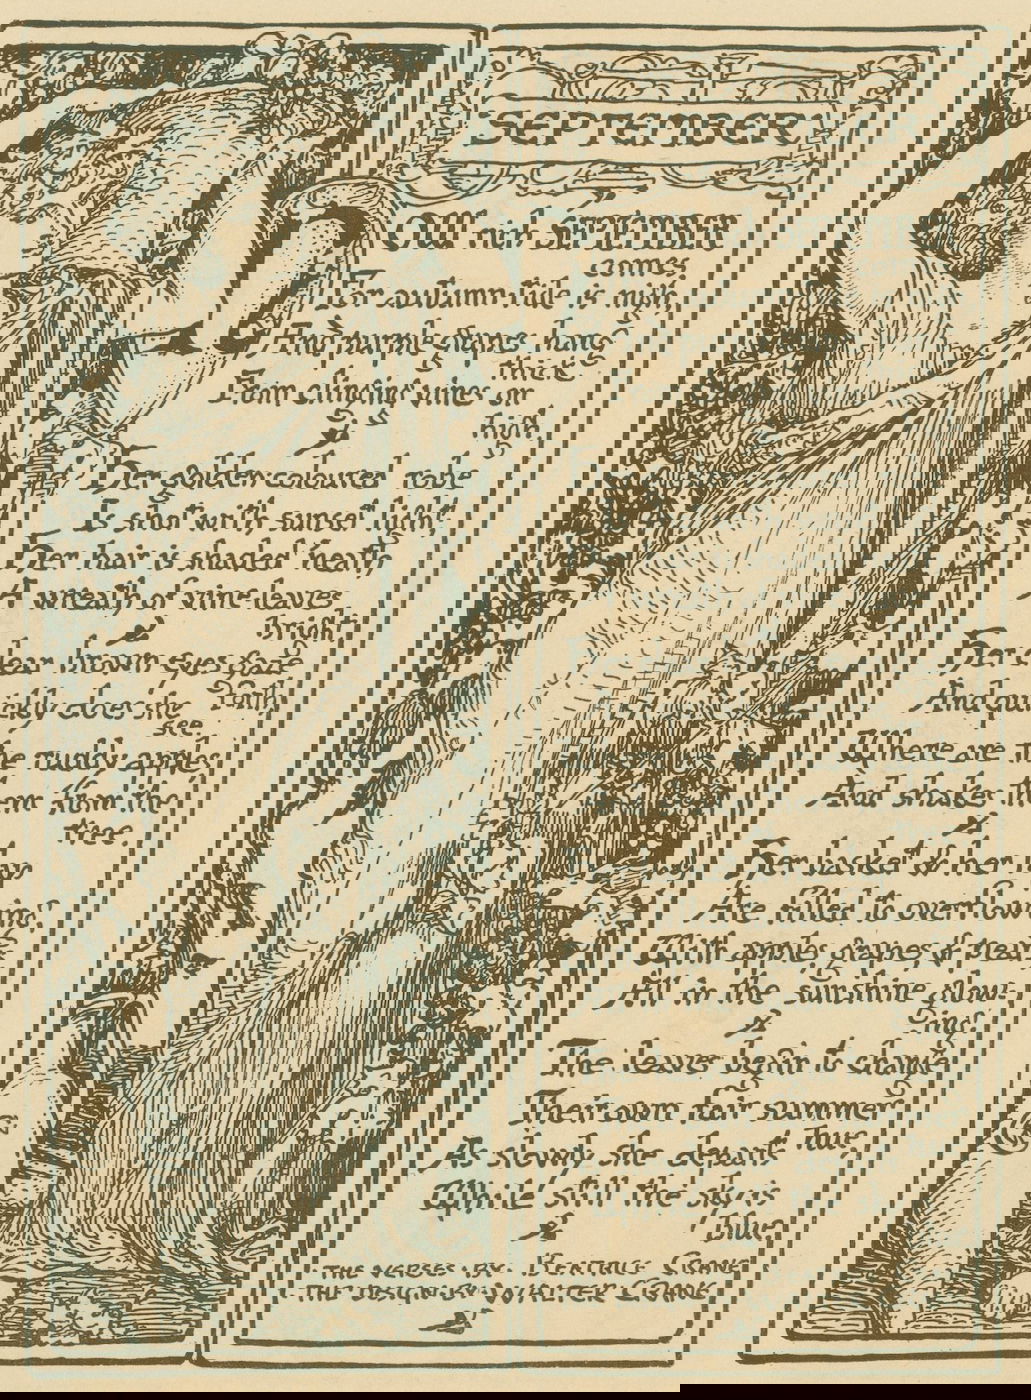 SEPTEMBER
OUR rich SEPTEMBER
comes,
For autumn-tide is nigh,
And purple grapes hang
thick
From clinging vines on
high.
Her golden-coloured robe
Is shot with sunset light,
Her hair is shaded 'neath
A wreath of vine-leaves
bright.
Her clear brown eyes gaze
forth,
And quickly does she
see
Where are the ruddy apples,
And shakes them from the
tree.
Her basket & her lap
Are filled to overflowing:
With apples, grapes, & pears
All in the sunshine glow-
ing.
The leaves begin to change
Their own fair summer
hue,
As slowly she departs
While still the sky is
blue.
THE VERSES · BY · BEATRICE CRANE
THE DESIGN · BY · WALTER CRANE